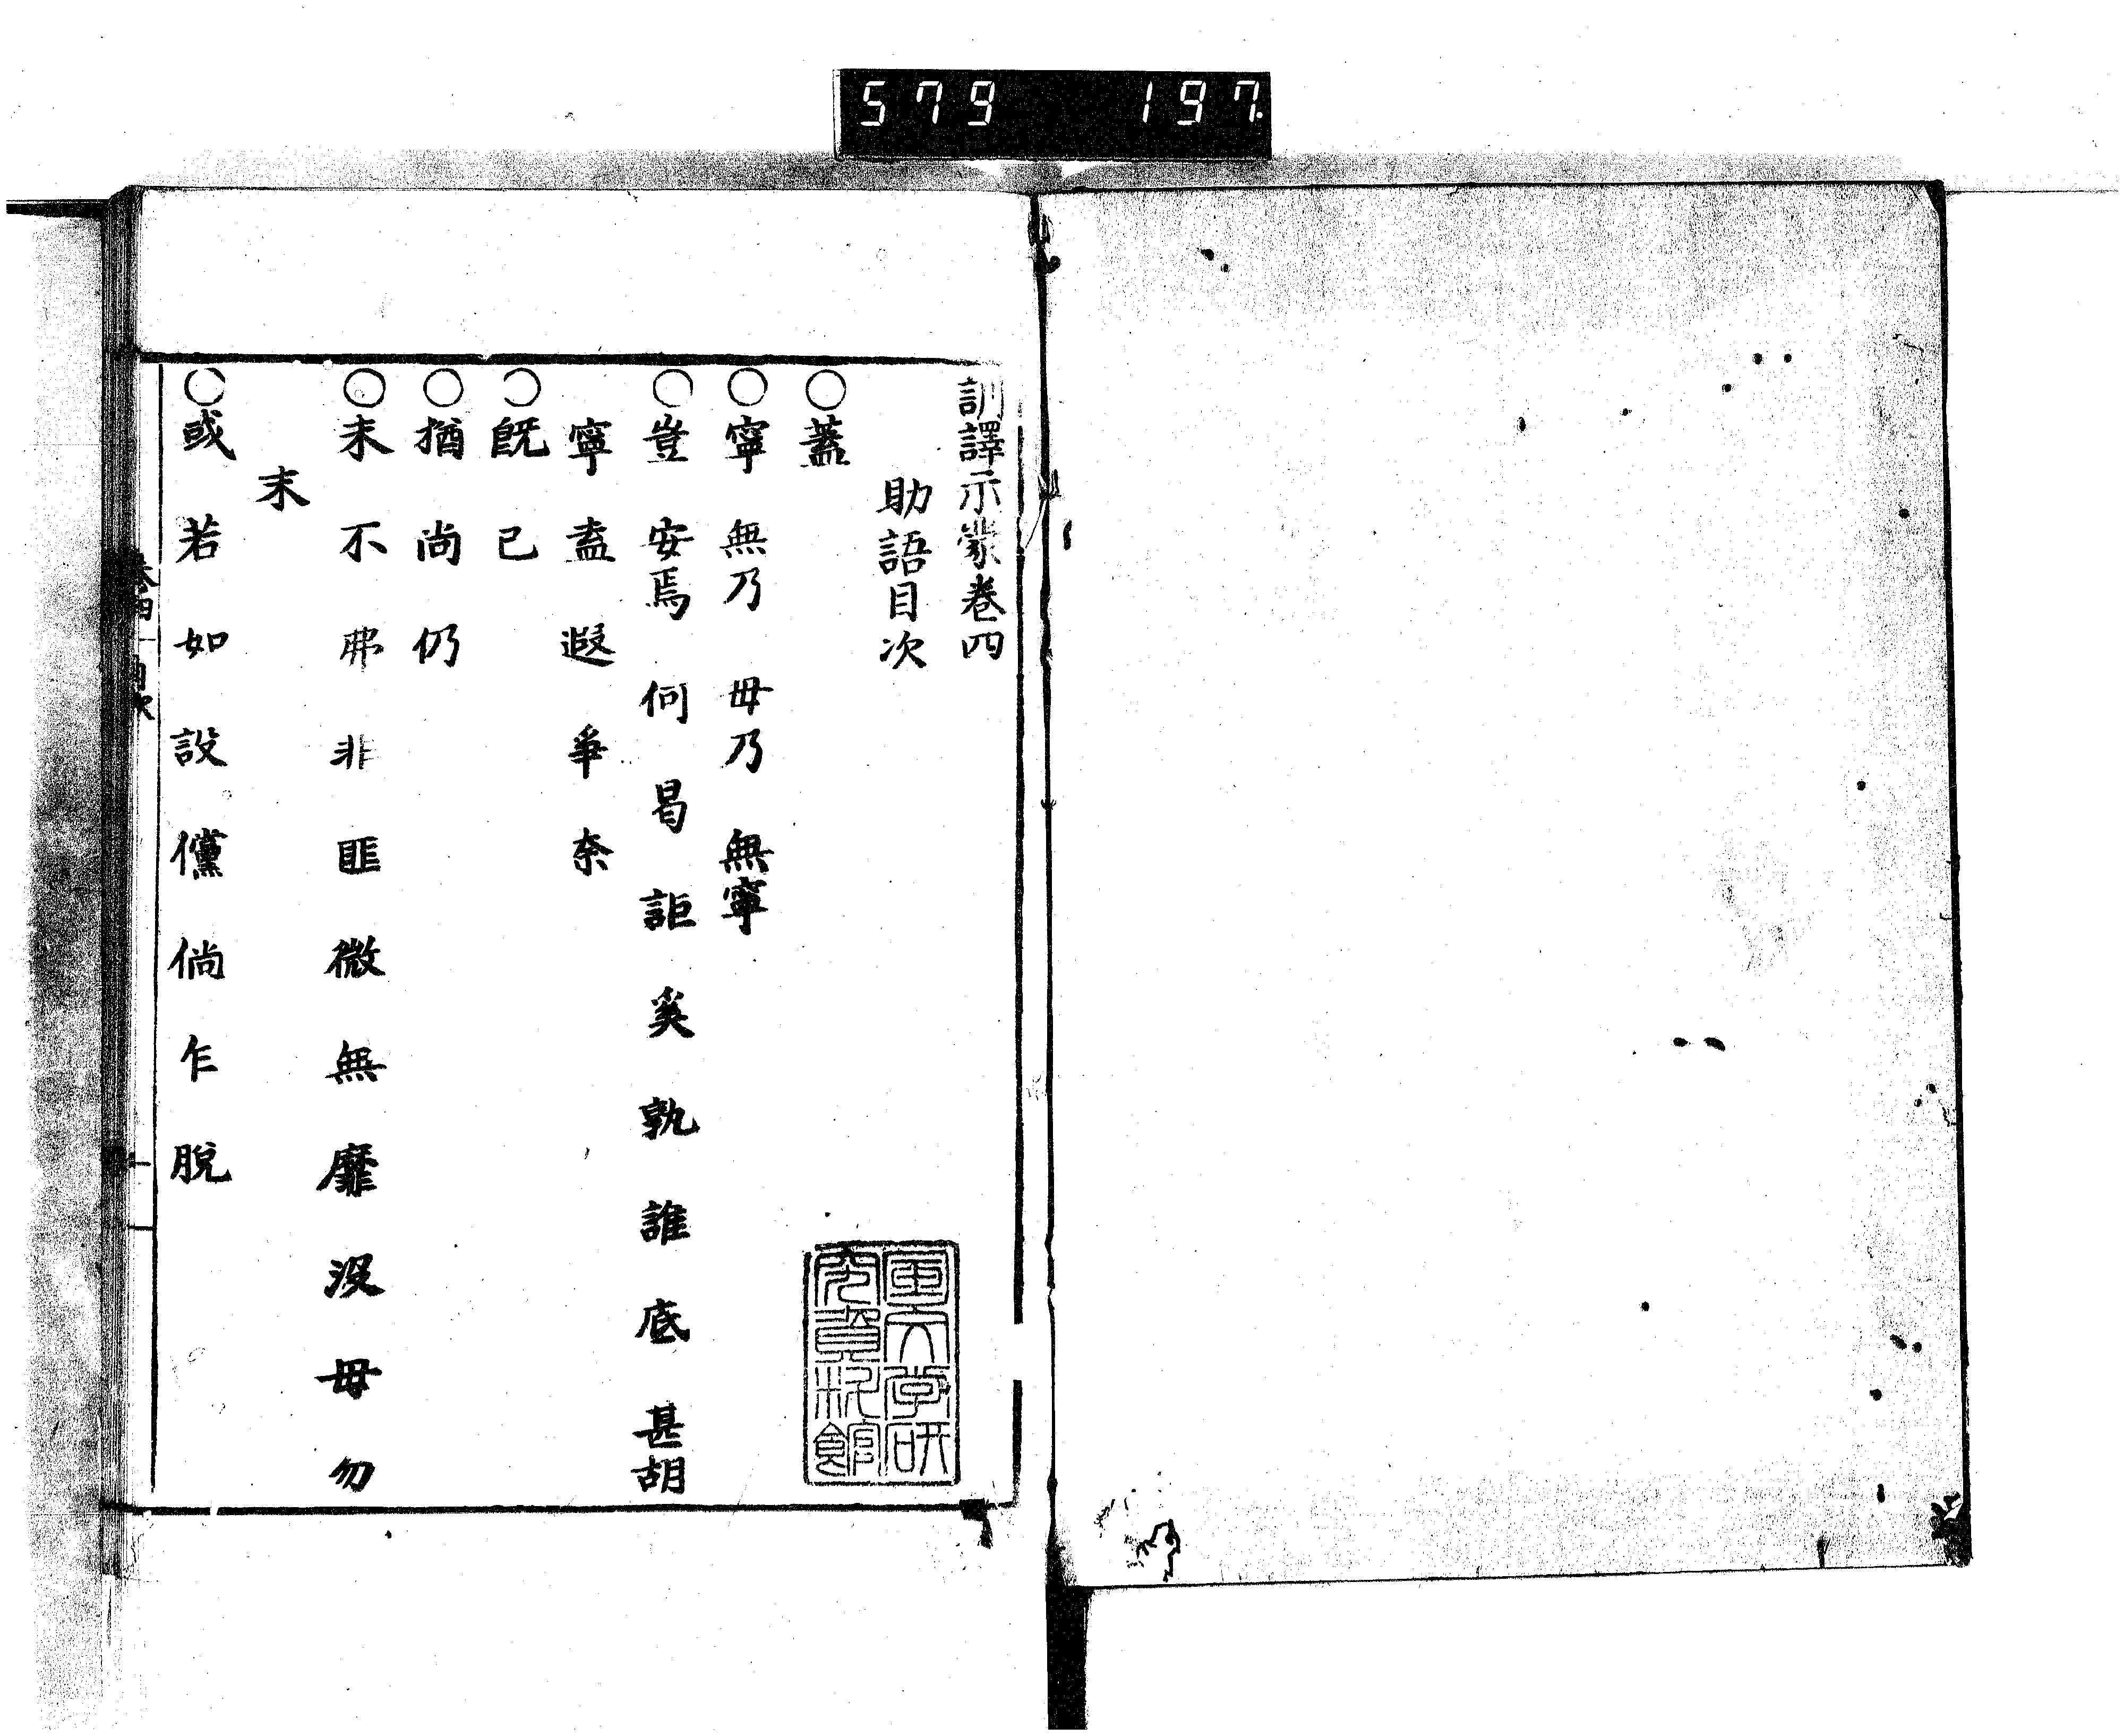 579 197.
訓譯示蒙卷四
助語目次
○蓋
○寧 無乃 毋乃 無寧
○豈 安焉 何 曷 詎 奚 孰 誰 底 甚胡
寧 盍 遐 爭 奈
○既 已
○猶 尚 仍
○未 不 弗 非 匪 微 無 靡 沒 毋 勿
末
○或 若 如 設 儻 倘 乍 脫
卷四 目次
国文学研
究資料館